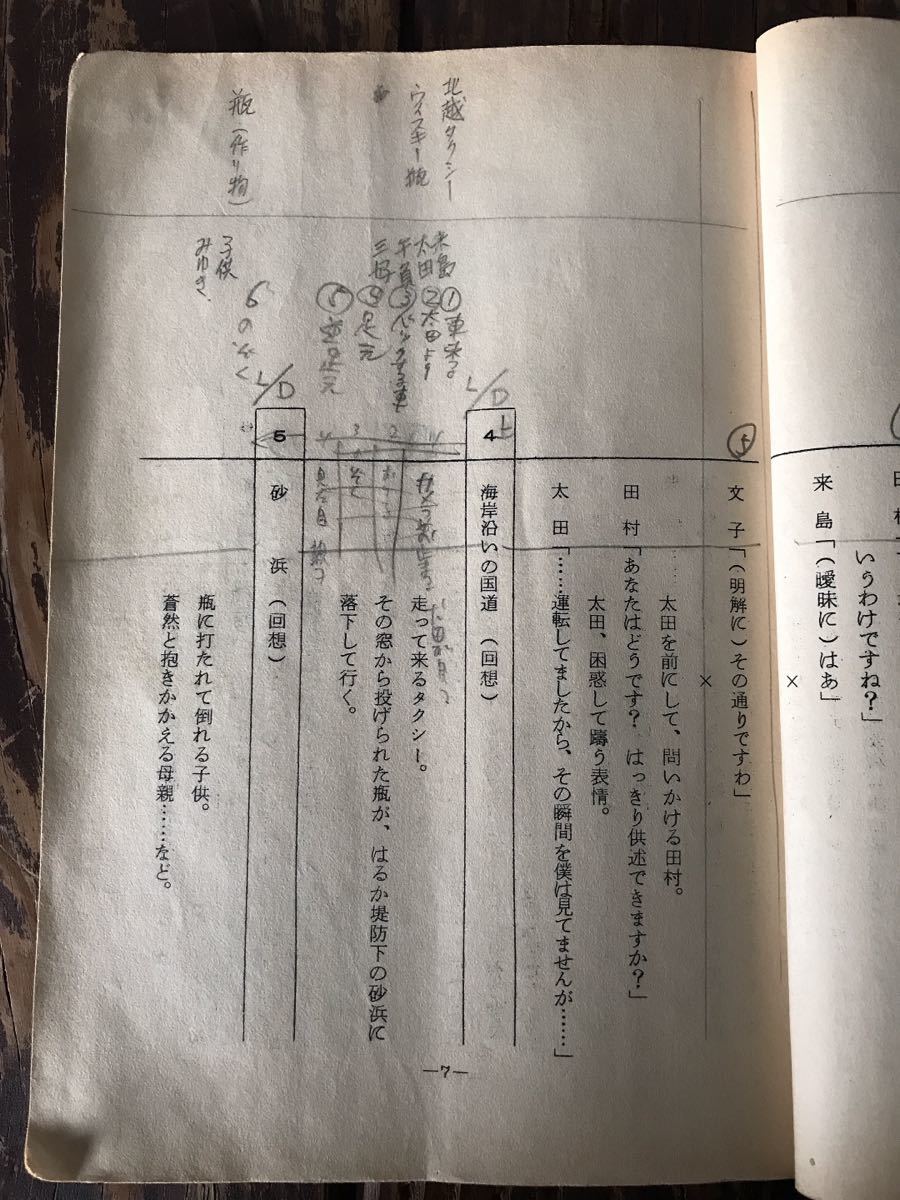 いうわけですね?」
来島「(曖昧に)はあ」
×
文子「(明解に)その通りですわ」
×
太田を前にして、問いかける田村。
田村「あなたはどうです? はっきり供述できますか?」
太田、困惑して躊う表情。
太田「……運転してましたから、その瞬間を僕は見てませんが……」
4 海岸沿いの国道(回想)
走って来るタクシー。
その窓から投げられた瓶が、はるか堤防下の砂浜に
落下して行く。
5 砂浜(回想)
瓶に打たれて倒れる子供。
蒼然と抱きかかえる母親……など。
—7—
北越タクシー
ウィスキー瓶
瓶(作り物)
来島
太田
子供
みゆき
①車来る
②太田より
③バックする車
④足元
⑤
L/D
L/D